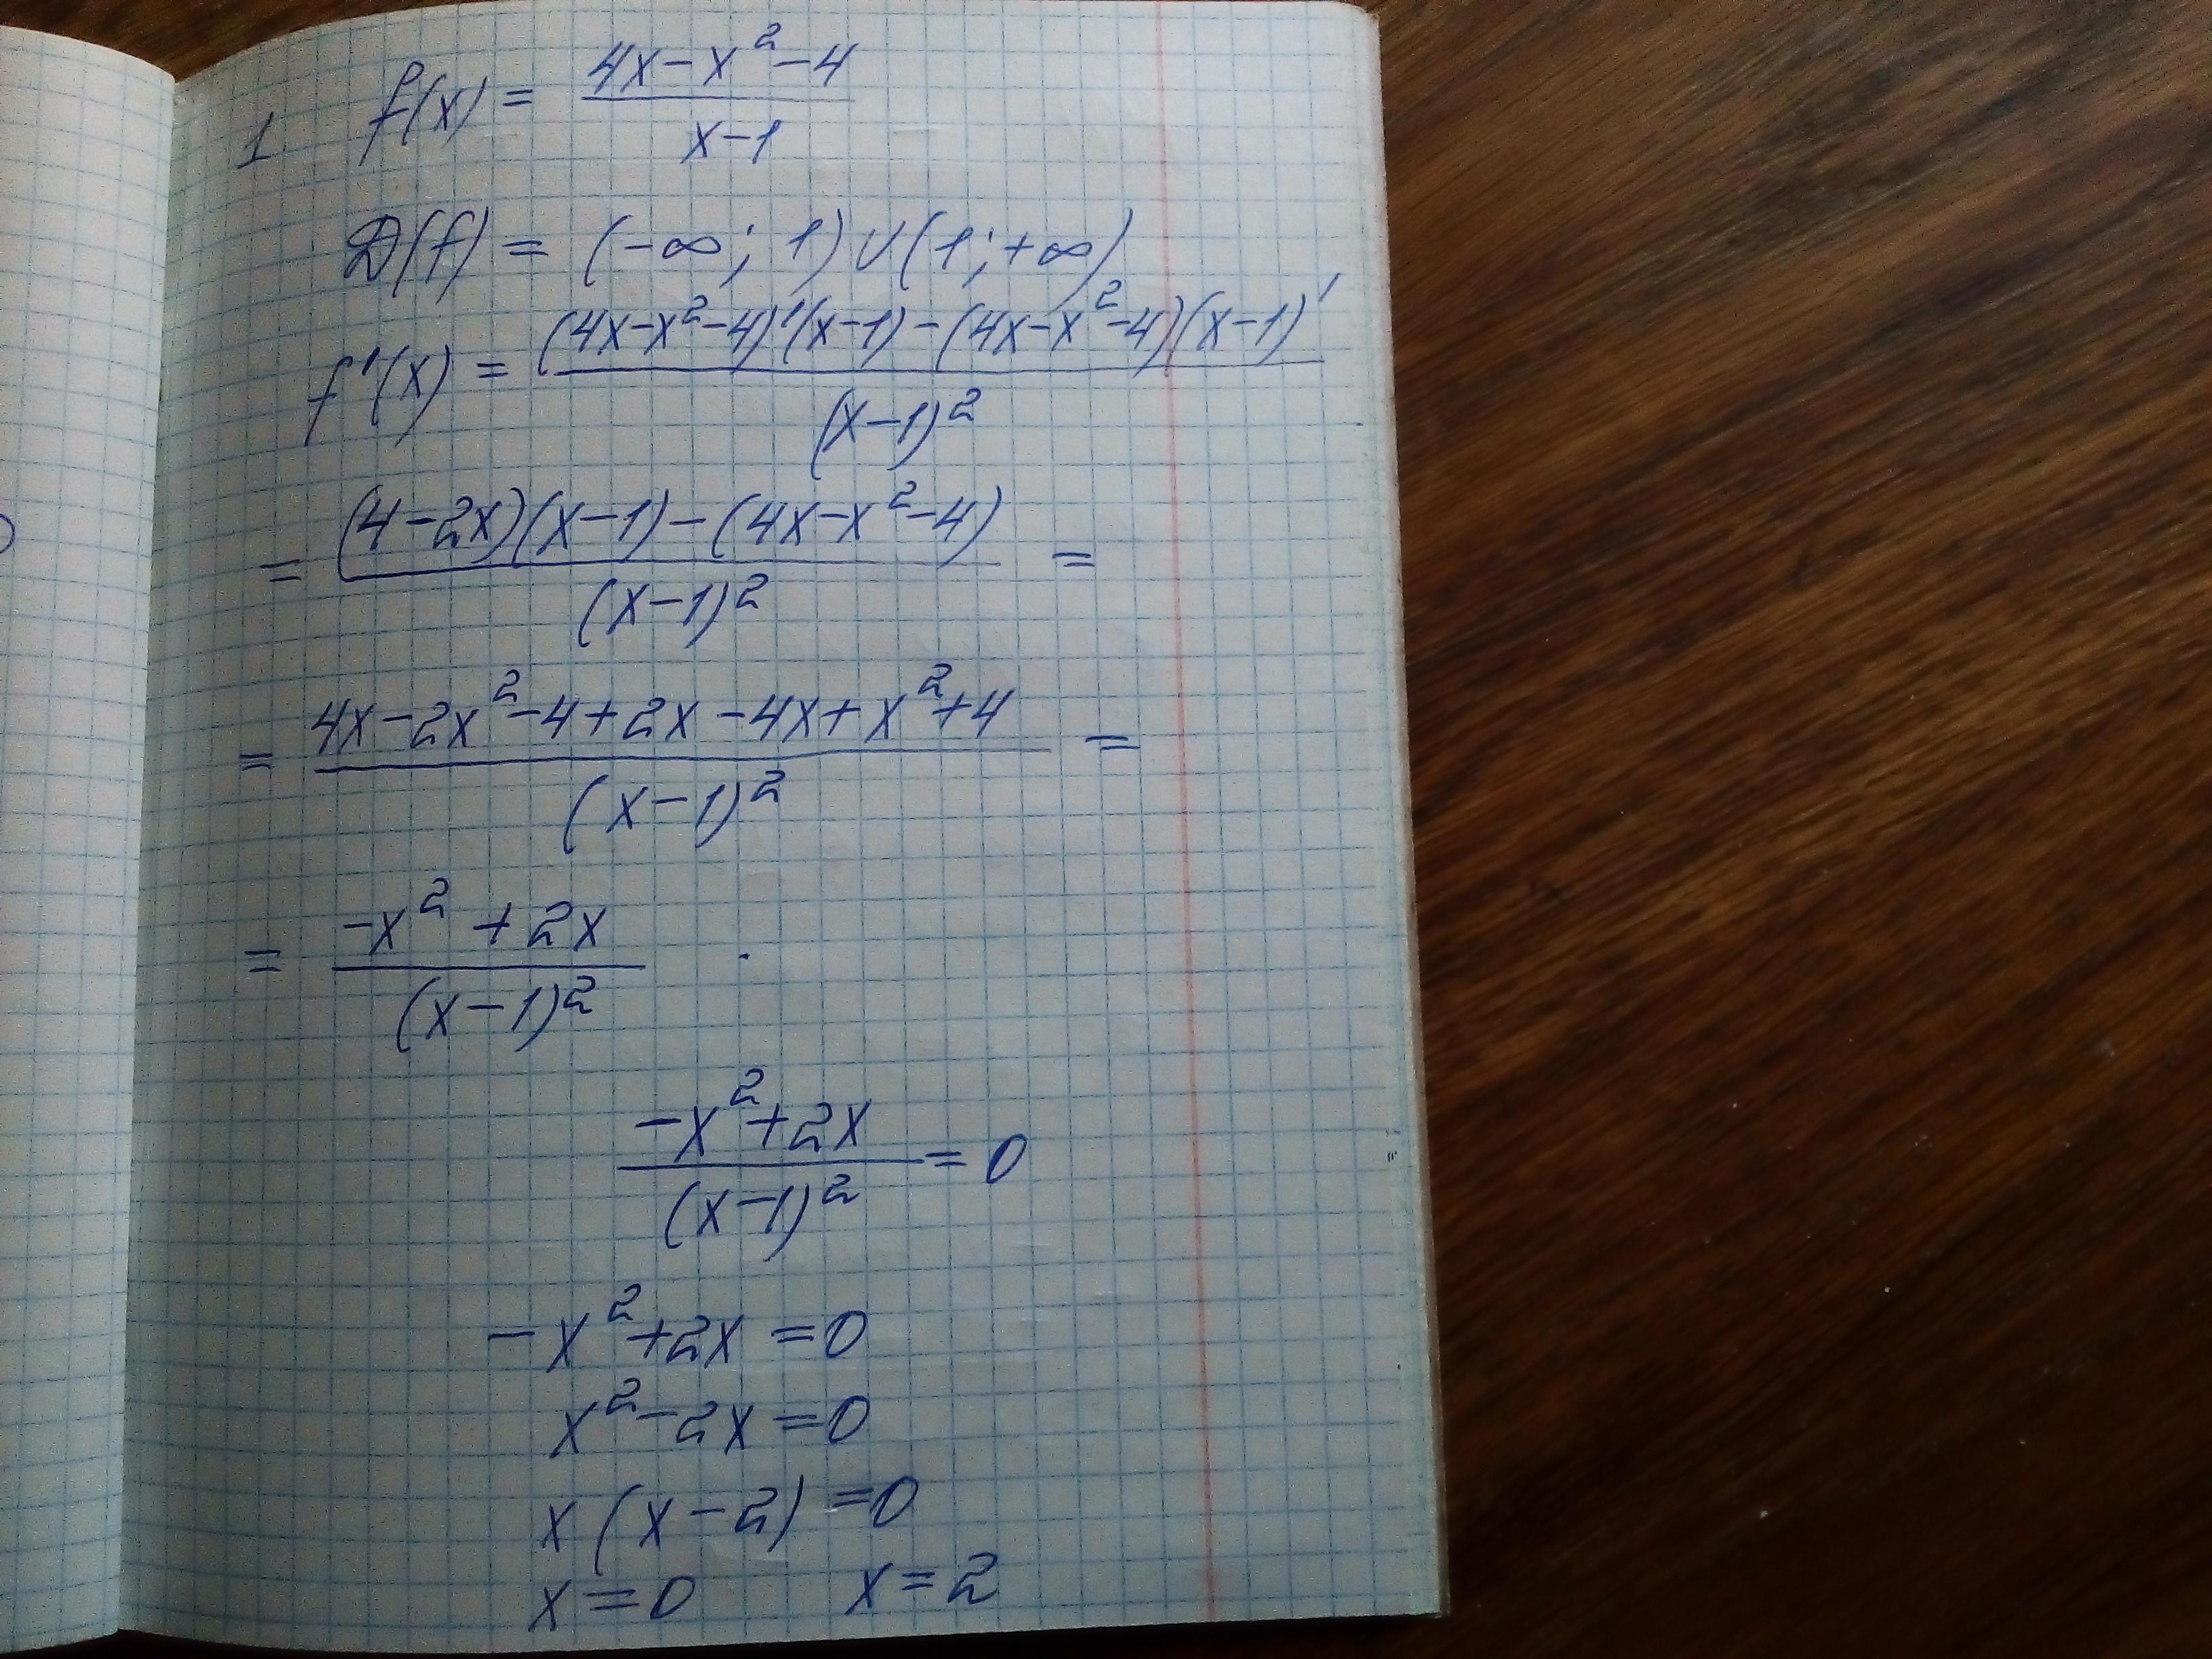 1 f(x) = (4x-x²-4)/(x-1)
D(f) = (-∞; 1)∪(1; +∞)
f'(x) = ((4x-x²-4)'(x-1)-(4x-x²-4)(x-1)')/(x-1)²
= ((4-2x)(x-1)-(4x-x²-4))/(x-1)² =
= (4x-2x²-4+2x-4x+x²+4)/(x-1)² =
= (-x²+2x)/(x-1)²
(-x²+2x)/(x-1)² = 0
-x²+2x=0
x²-2x=0
x(x-2)=0
x=0 x=2